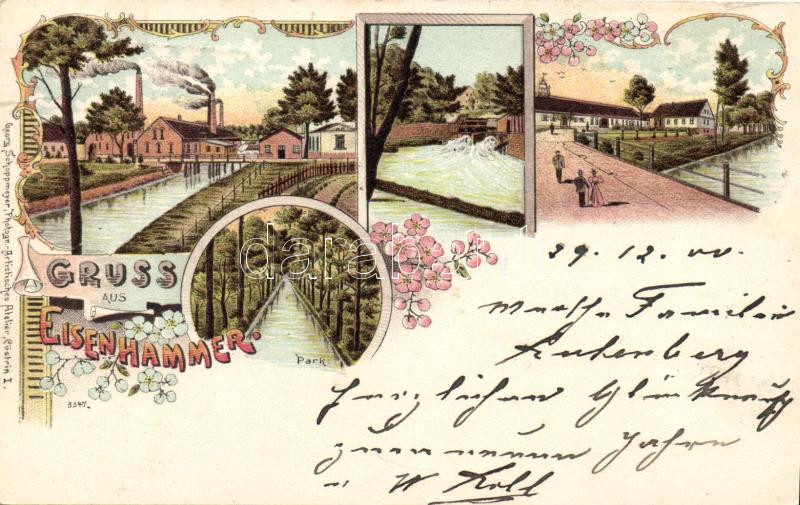 Georg Schoppmeyer, Photogr.-Artistisches Atelier, Cüstrin I.
GRUSS
AUS
EISENHAMMER
Park
3347.
darabanth
29. 12. 00.
Familie
herzlichen Glückwunsch
zum neuen Jahre
u W Koll